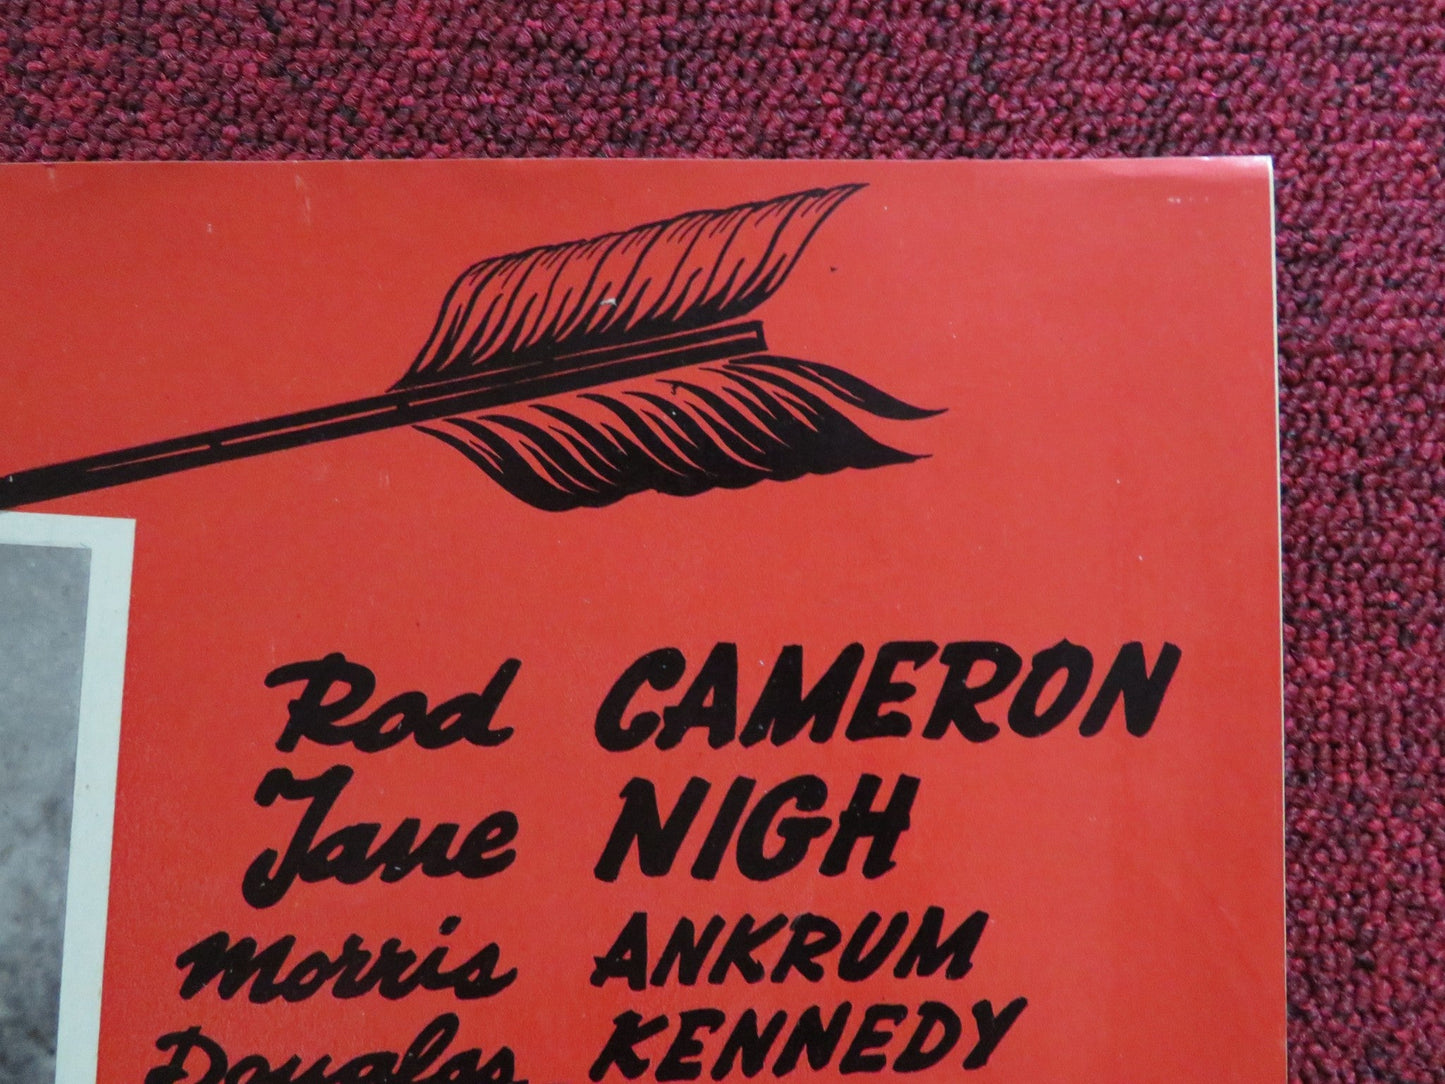 Rod CAMERON
Jane NIGH
Morris ANKRUM
Douglas KENNEDY